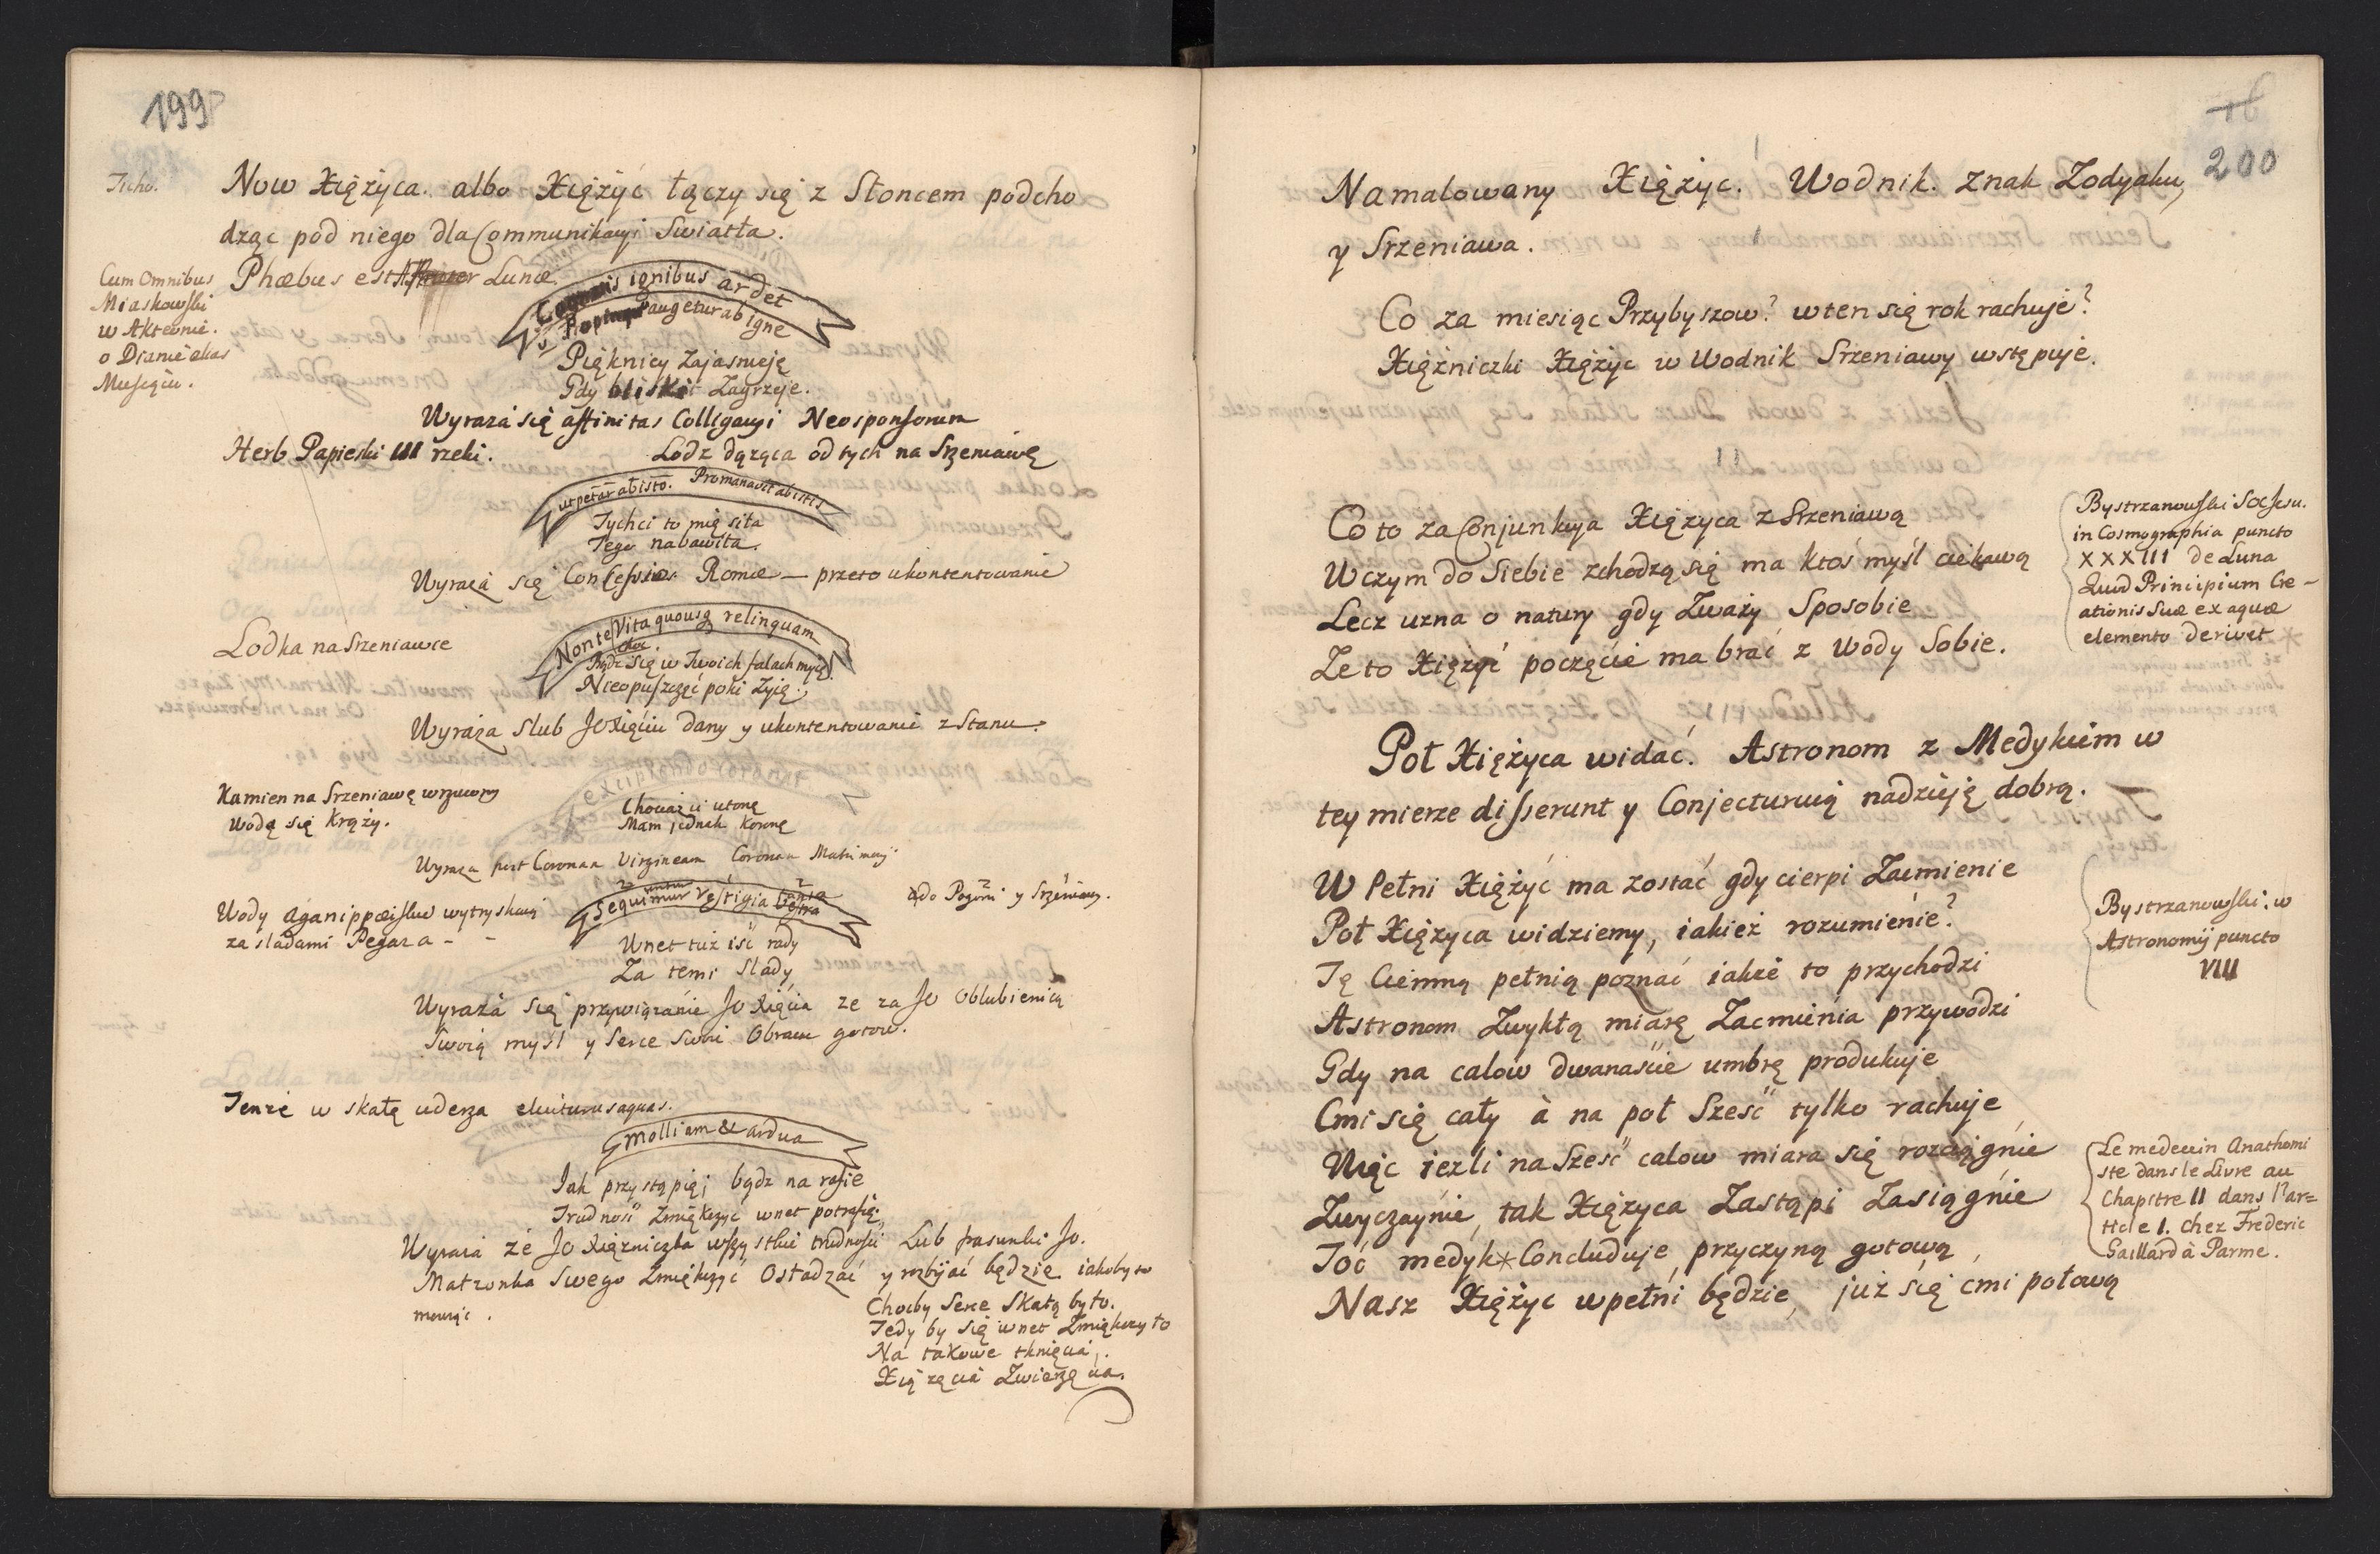 199
Now Xiężyca. albo Xiężyć łączy się z Słoncem podcho
dząc pod niego dla Communikacyi Swiatła.
Cum Omnibus
Miaskowski
w Akteonie.
o Dianie
Phæbus est Lunæ
ignibus ardet
augetur ab igne
Pięknicy Zajasnieję
Gdy bliski Zagrzeje.
Wyraża się affinitas Colligacyi Neosponsorum
Herb Papieski III rzeki. Lodz dążąca od tych na Srzeniawę
ut petar ab isto. Promanavit ab istis
Tychci to mię siła
Tego nabawiła.
Wyraża się Consessio Romæ — przeto ukontentowanie
Lodka na Srzeniawie
Non te Vita quousq relinquam
choc.
Bydz się w Twoich falach myię
Nieopuszczę poki Zyię.
Wyraża slub Jo Xięciu dany y ukontentowanie z Stanu.
Kamien na Srzeniawę wrzucony
Wodą się Krąży.
Chociaż ci utonę
Mam jednak Koronę
Wyraża post Coronam Virgineam Coronam Matrimonij.
Wody Aganippæiskie wytryskaią
za sladami Pegaza - -
Sequimur Vestigia
vestra
ado Pogoni y Srzeniawy.
Wnet tuż iść rady
Za temi slady
Wyraża się przywiązanie Jo Xięcia ze za Jo Oblubienicą
Swoią myśl y Serce Swoie Obraca gotow.
Tenże w skałę uderza eliciturus aquas.
Molliam & ardua
Jak przystąpię; bądz na rasie
Trudność Zmiękczyć wnet potrafię.
Wyraża że Jo Xiężniczka wszystkie trudności Lub frasunki Jo.
Małzonka Swego Zmiękczyć Osładzać y rozbijać będzie. iakoby to
mowiąc.
Choćby Serce Skałą było.
Tedy by się wnet Zmiękczyło
Na takowe tknięcia.
Xiążęcia Zwierzęcia.
200
Namalowany Xiężyc. Wodnik. znak Zodyaku,
y Srzeniawa.
Co za miesiąc Przybyszow? w ten się rok rachuje?
Xiężniczki Xiężyc w Wodnik Srzeniawy wstępuje.
Co to za Conjunkcya Xiężyca z Srzeniawą
W czym do Siebie zchodzą się ma ktoś myśl ciekawą
Lecz uzna o natury gdy Zważy Sposobie
Ze to Xiężyć poczęcie ma brać z Wody Sobie.
Bystrzanowski Soc Jesu.
in Cosmographia puncto
XXXIII de Luna
Quod Principium Cre-
ationis Suæ ex aquæ
elemento derivet
Poł Xiężyca widać. Astronom z Medykiem w
tey mierze disserunt y Conjecturuią nadzieję dobrą.
W Pełni Xiężyć ma zostać gdy cierpi Zacmienie
Poł Xiężyca widziemy, iakież rozumienie?
Tę Ciemną pełnią poznać iakże to przychodzi
Astronom Zwykłą miarę Zacmienia przywodzi
Gdy na calow dwanaście umbrę produkuje
Cmi się cały à na poł Sześć tylko rachuje
Więc iezli na Sześć calow miara się rozciągnie
Zwyczaynie, tak Xiężyca Zastąpi Zasiągnie
Toć medyk * Concluduje przyczyną gotową,
Nasz Xiężyc w pełni będzie, już się ćmi połową
Bystrzanowski. w
Astronomij puncto
VIII
Le medecin Anathomi
ste dans le Livre au
Chapitre II dans l'ar=
ticle I. chez Frederic
Gaillard à Parme.